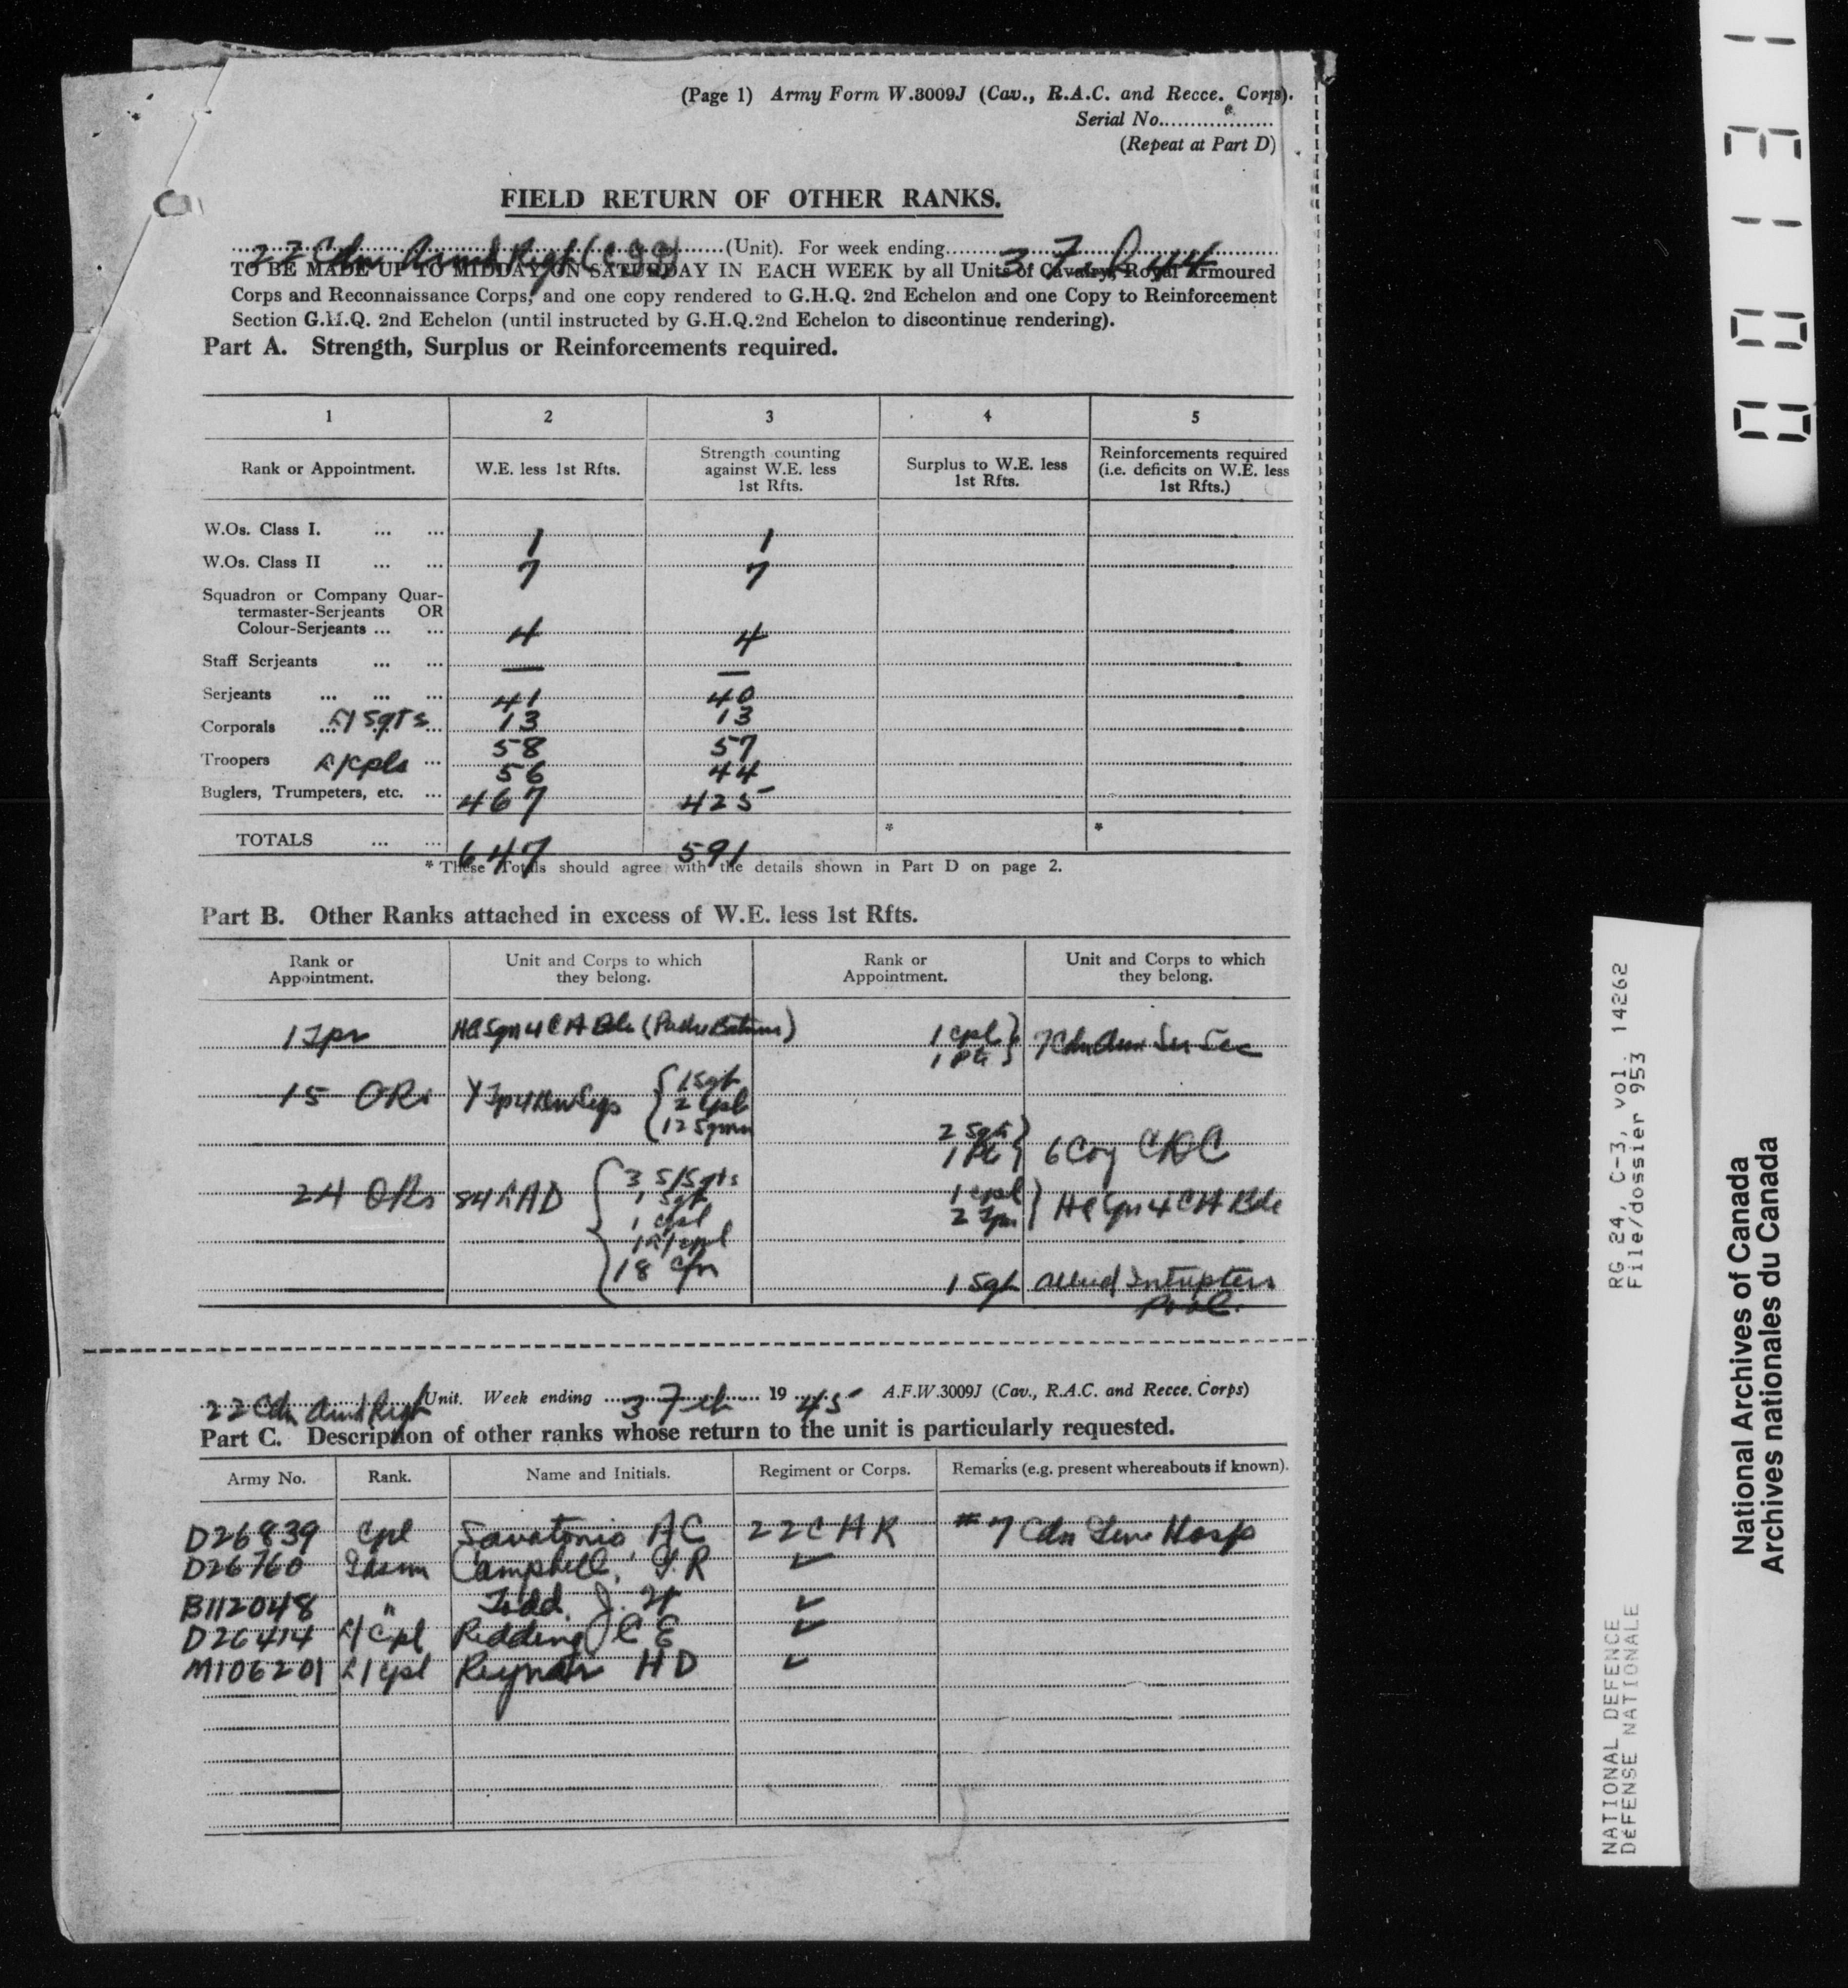 (Page 1) Army Form W.3009J (Cav., R.A.C. and Recce. Corps).
Serial No...................
(Repeat at Part D)
FIELD RETURN OF OTHER RANKS.
22 Cdn Armd Regt (CGG) (Unit). For week ending 3 Feb 44
TO BE MADE UP TO MIDDAY ON SATURDAY IN EACH WEEK by all Units of Cavalry, Royal Armoured
Corps and Reconnaissance Corps, and one copy rendered to G.H.Q. 2nd Echelon and one Copy to Reinforcement
Section G.H.Q. 2nd Echelon (until instructed by G.H.Q.2nd Echelon to discontinue rendering).
Part A. Strength, Surplus or Reinforcements required.
1 2 3 4 5
Rank or Appointment. W.E. less 1st Rfts. Strength counting against W.E. less 1st Rfts. Surplus to W.E. less 1st Rfts. Reinforcements required (i.e. deficits on W.E. less 1st Rfts.)
W.Os. Class I. ... ... 1 1
W.Os. Class II ... ... 7 7
Squadron or Company Quar-
termaster-Serjeants OR
Colour-Serjeants ... ... 4 4
Staff Serjeants ... ... — —
Serjeants ... ... ... 41 40
Corporals L/Sgts 13 13
58 57
Troopers L/Cpls ... 56 44
Buglers, Trumpeters, etc. ... 467 425
TOTALS ... ... 647 591 * *
* These Totals should agree with the details shown in Part D on page 2.
Part B. Other Ranks attached in excess of W.E. less 1st Rfts.
Rank or Appointment. Unit and Corps to which they belong. Rank or Appointment. Unit and Corps to which they belong.
1 Tpr HQ Sqn 4 CA Bde
1 Cpl
1 Pte } 7 Cdn
15 ORs Y Tp 4 { 1 Sgt
2 Cpl
12 Sgmn
2 Sgts
1 Pte } 6 Coy CDC
24 ORs 84 LAD { 3 S/Sgts
1 Sgt
1 Cpl
1 L/Cpl
18 Cfn
1 Cpl
2 Tpr } HQ Sqn 4 CA Bde
1 Sgt Allied
Pool.
22 Cdn Armd Regt Unit. Week ending 3 Feb 19 45 A.F.W.3009J (Cav., R.A.C. and Recce. Corps)
Part C. Description of other ranks whose return to the unit is particularly requested.
Army No. Rank. Name and Initials. Regiment or Corps. Remarks (e.g. present whereabouts if known).
D26839 Cpl AC 22 C A R #7 Cdn Gen Hosp
D26760 Gdsmn Campbell, R ✓
B112048 " Todd, J. ✓
D26414 L/Cpl Redding C E ✓
M106201 L/Cpl H D ✓
00131
RG 24, C-3, vol. 14262
File/dossier 953
NATIONAL DEFENCE
DÉFENSE NATIONALE
National Archives of Canada
Archives nationales du Canada